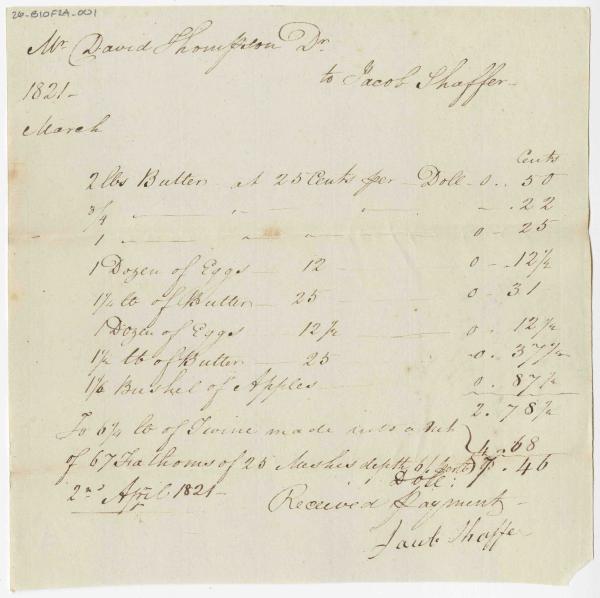 26-B10F2A-001
Mr. David Thompson Dr.
to Jacob Shaffer
1821
March
Cents
2 lbs Butter at 25 Cents per Doll 0 .. 50
3/4 — " — " — .22
1 — " — " — 0 — 25
1 Dozen of Eggs — 12 — 0 - .12 1/2
1 1/4 lb of Butter — 25 — 0 - 31
1 Dozen of Eggs 12 1/2 — 0 . 12 1/2
1 1/2 lb of Butter — 25 — 0 . 37 1/2
1 1/6 Bushel of Apples — 0 . 87 1/2
2. 78 1/2
To 6 1/4 lb of Twine made into a
of 67 Fathoms of 25 Mashes depth } 4 .. 68
Doll: 7 . 46
2nd April 1821 —
Received Payment —
Jacob Shaffer